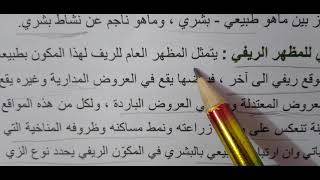 ز بين ماهو طبيعي - بشري ، وماهو ناجم عن نشاط بشري.
ي للمظهر الريفي : يتمثل المظهر العام للريف لهذا المكون بطبيعة
موقع ريفي الى آخر ، يقع في العروض المدارية وغيره يقع
العروض المعتدلة العروض الباردة ، ولكل من هذه المواقع
ينة تنعكس على زراعته ونمط مساكنه وظروفه المناخية التي
ياتي وان ارتبا بالبشري في المكون الريفي يحدد نوع الزي